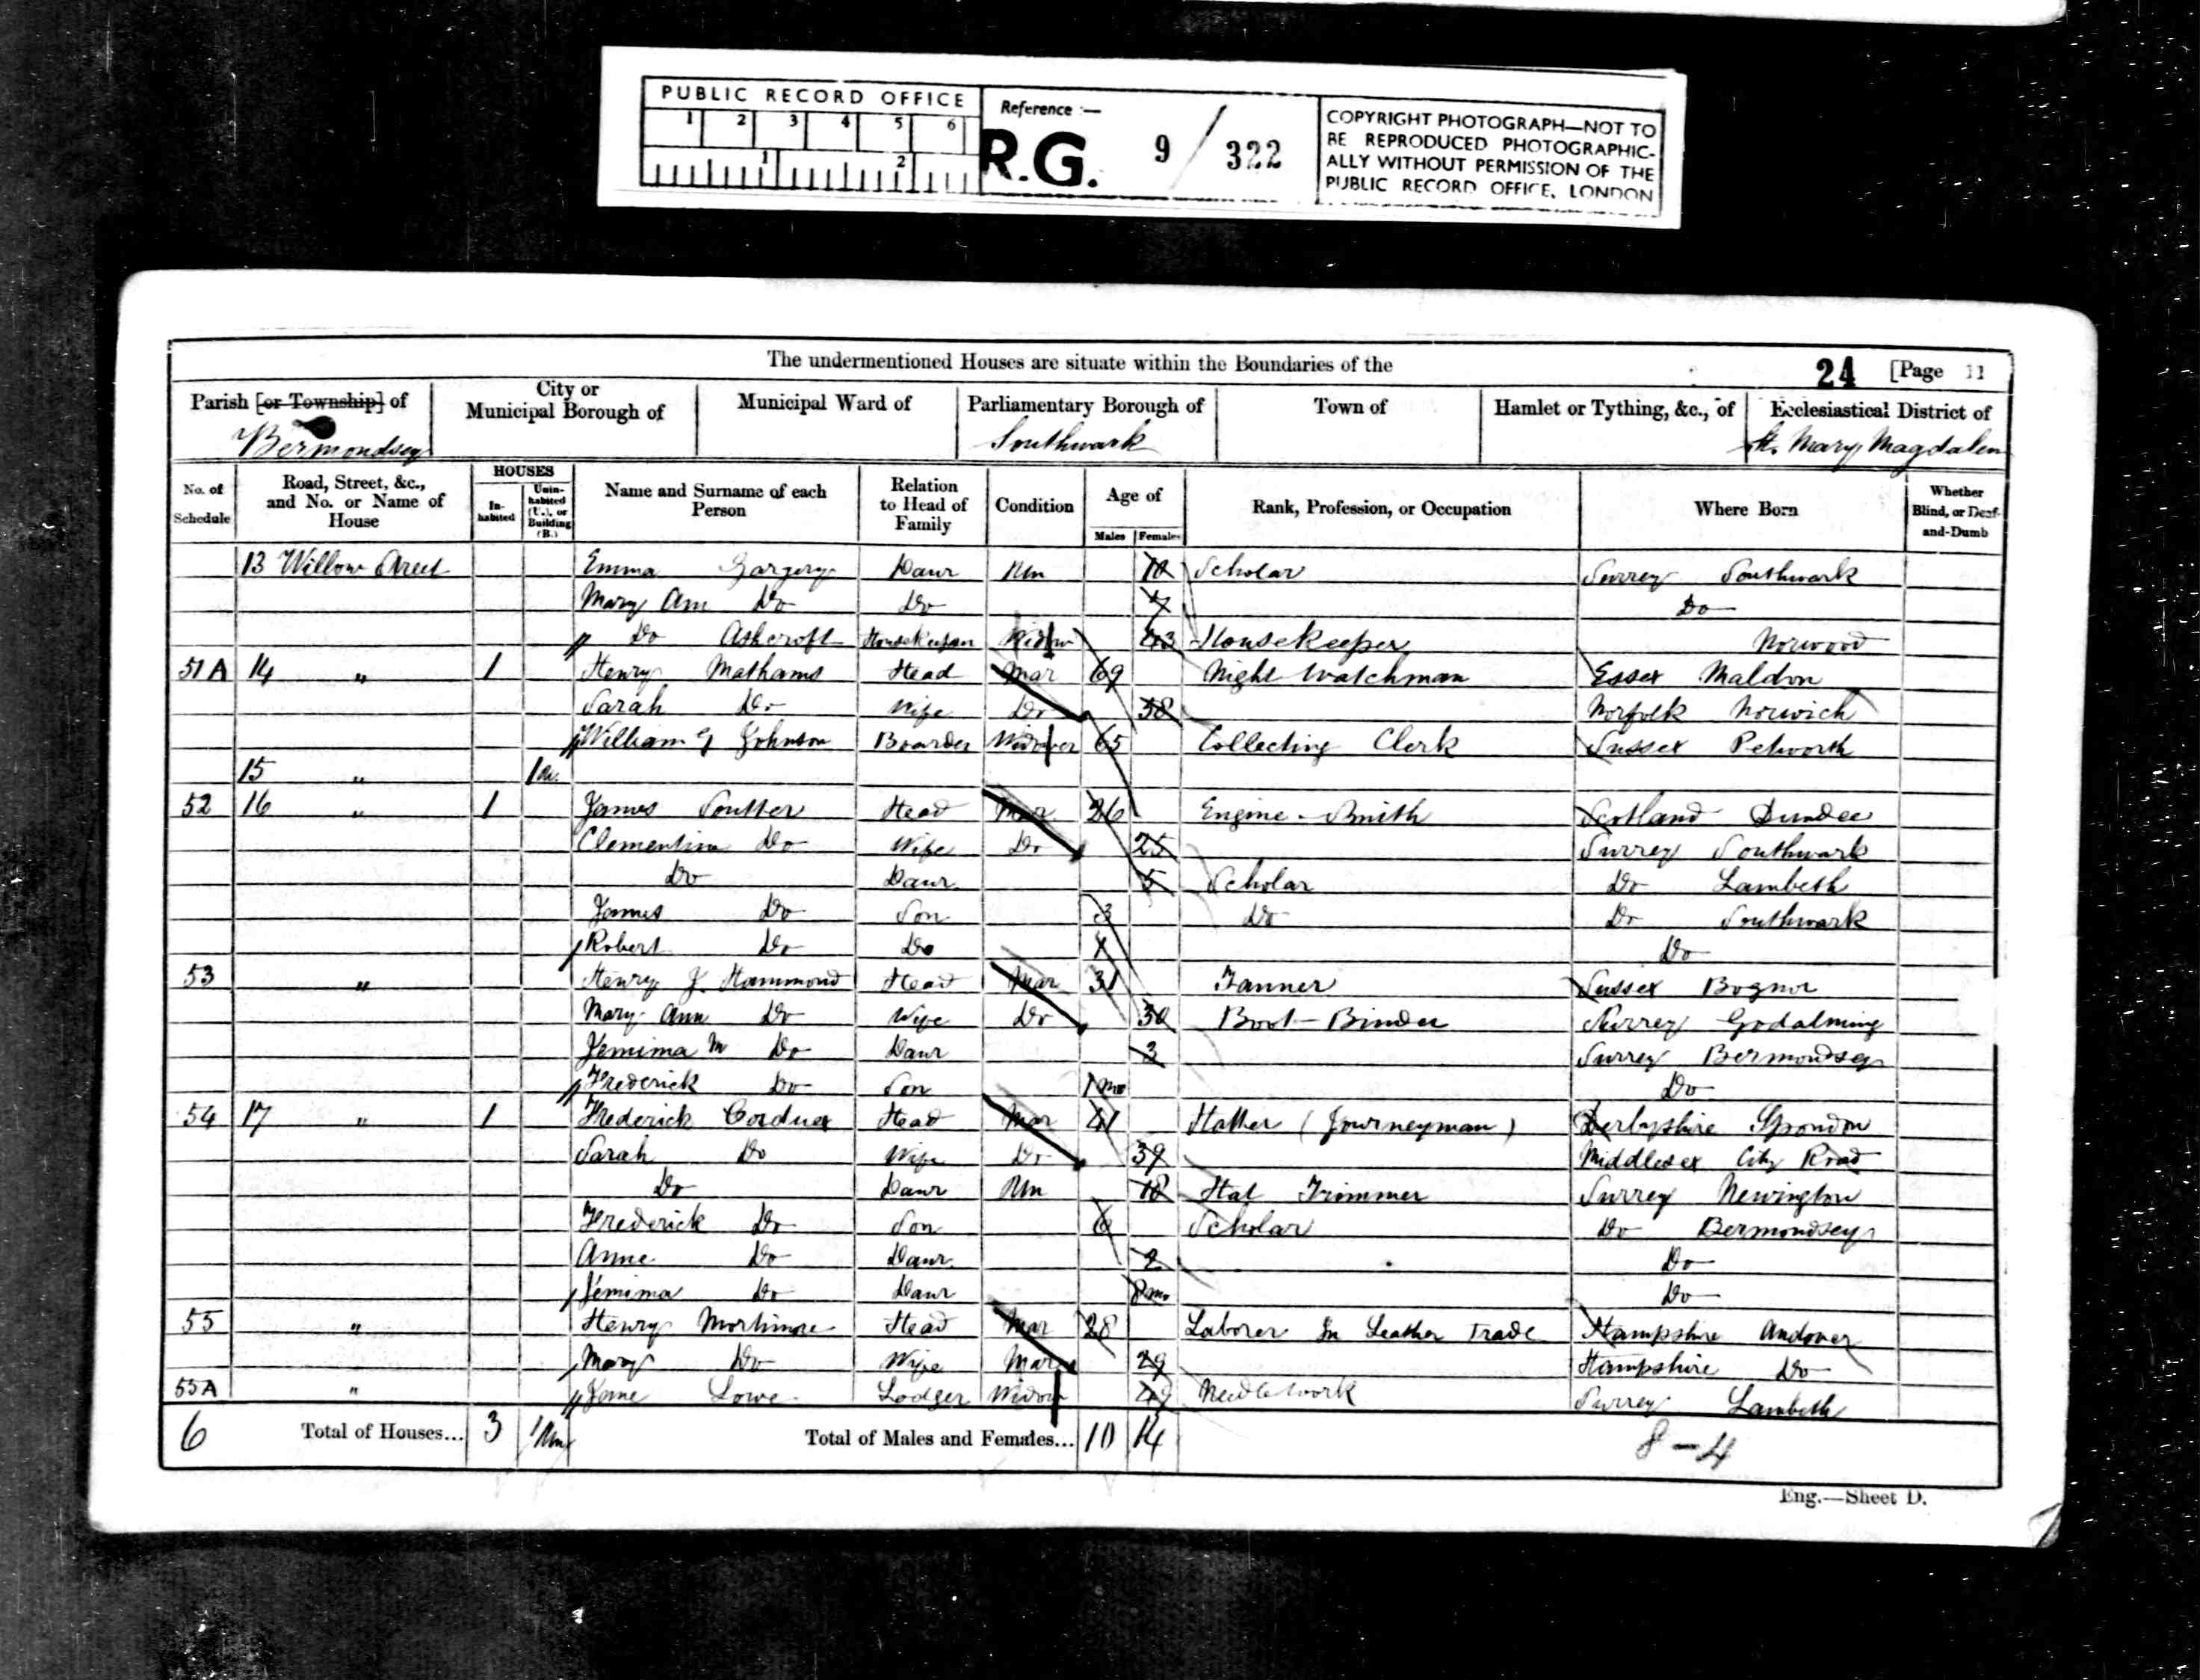 PUBLIC RECORD OFFICE
1 2 3 4 5 6
1 2
Reference :—
R.G. 9 / 322
COPYRIGHT PHOTOGRAPH—NOT TO
BE REPRODUCED PHOTOGRAPHIC-
ALLY WITHOUT PERMISSION OF THE
PUBLIC RECORD OFFICE, LONDON
The undermentioned Houses are situate within the Boundaries of the 24 [Page 11
Parish [or Township] of City or Municipal Borough of Municipal Ward of Parliamentary Borough of Town of Hamlet or Tything, &c., of Ecclesiastical District of
Bermondsey Southwark St. Mary Magdalen
No. of Schedule Road, Street, &c., and No. or Name of House HOUSES In-habited Unin-habited (U.), or Building (B.) Name and Surname of each Person Relation to Head of Family Condition Age of Males Females Rank, Profession, or Occupation Where Born Whether Blind, or Deaf-and-Dumb
13 Willow Street Emma Gargery Daur Un 10 Scholar Surrey Southwark
Mary Ann Do Do 7 Do
Do Ashcroft Housekeeper Widow 43 Housekeeper Norwood
51A 14 " 1 Henry Mathams Head Mar 69 Night Watchman Essex Maldon
Sarah Do Wife Do 58 Norfolk Norwich
William G Johnson Boarder Widower 65 Collecting Clerk Sussex Petworth
15 " 1
52 16 " 1 James Soutter Head Mar 26 Engine Smith Scotland Dundee
Clementina Do Wife Do 25 Surrey Southwark
Do Daur 5 Scholar Do Lambeth
James Do Son 3 Do Do Southwark
Robert Do Do 1 Do
53 " Henry J Hammond Head Mar 31 Tanner Sussex Bognor
Mary Ann Do Wife Do 30 Boot Binder Surrey Godalming
Jemima M Do Daur 3 Surrey Bermondsey
Frederick Do Son 1 mo Do
54 17 " 1 Frederick Cordeux Head Mar 41 Hatter (Journeyman) Derbyshire Spondon
Sarah Do Wife Do 39 Middlesex City Road
Do Daur Un 18 Hat Trimmer Surrey Newington
Frederick Do Son 6 Scholar Do Bermondsey
Anne Do Daur 2 Do
Jemima Do Daur 8 mo Do
55 " Henry Mortimore Head Mar 28 Laborer In Leather Trade Hampshire Andover
Mary Do Wife Mar 29 Hampshire Do
55A " Jane Lowe Lodger Widow 49 Needlework Surrey Lambeth
6 Total of Houses... 3 1 Total of Males and Females... 10 14 8 - 4
Eng.—Sheet D.